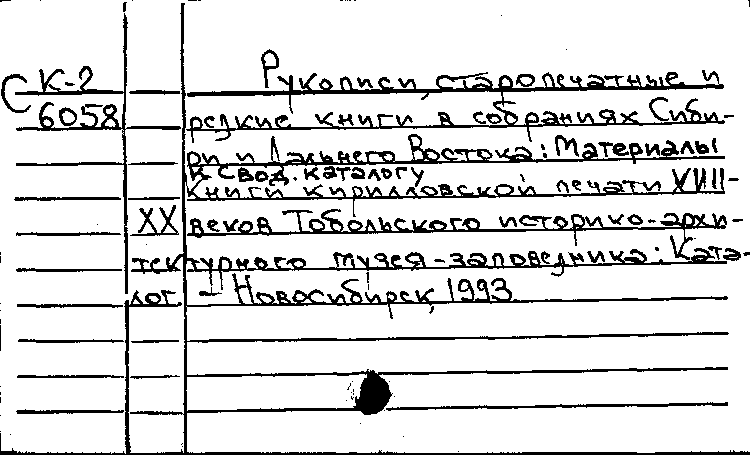 С К-2 Рукописи, старопечатные и
6058 редкие книги в собраниях Сиби-
ри и Дальнего Востока: Материалы
к Свод. каталогу
книги кирилловской печати XVIII-
XX веков Тобольского историко-архи-
тектурного музея-заповедника: Ката-
лог. – Новосибирск, 1993